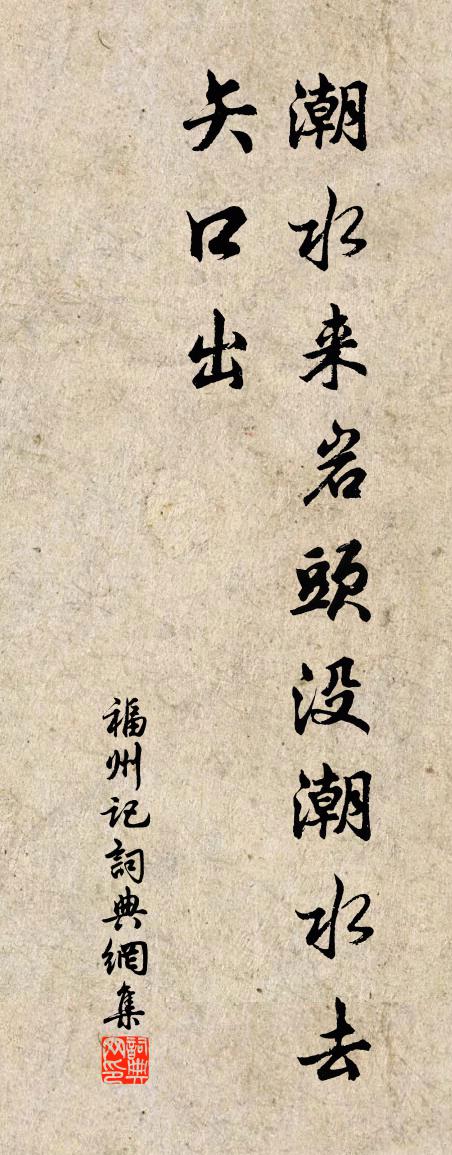 潮水来岩頭没潮水去
矢口出
福州记詞典網集
詞典网印